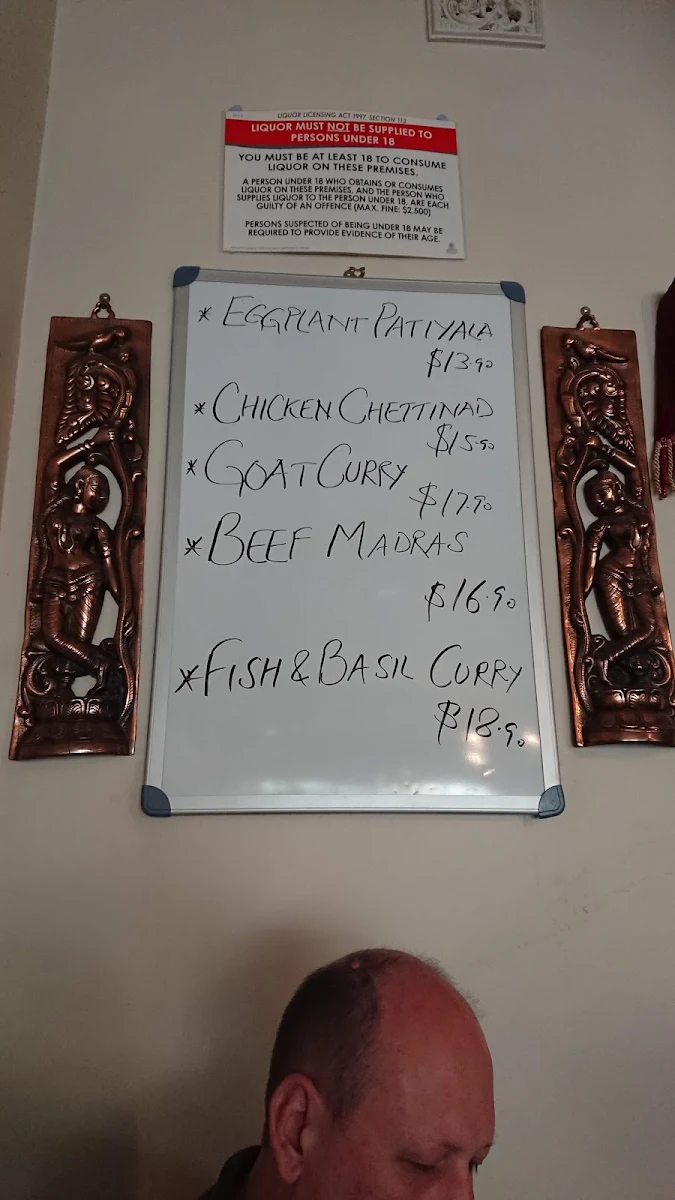 LIQUOR LICENSING ACT 1997, SECTION 113
LIQUOR MUST NOT BE SUPPLIED TO
PERSONS UNDER 18
YOU MUST BE AT LEAST 18 TO CONSUME
LIQUOR ON THESE PREMISES.
A PERSON UNDER 18 WHO OBTAINS OR CONSUMES
LIQUOR ON THESE PREMISES, AND THE PERSON WHO
SUPPLIES LIQUOR TO THE PERSON UNDER 18, ARE EACH
GUILTY OF AN OFFENCE (MAX. FINE: $2,500)
PERSONS SUSPECTED OF BEING UNDER 18 MAY BE
REQUIRED TO PROVIDE EVIDENCE OF THEIR AGE.
* EGGPLANT PATIYALA
$13.90
* CHICKEN CHETTINAD
$15.90
* GOAT CURRY
$17.90
* BEEF MADRAS
$16.90
* FISH & BASIL CURRY
$18.90